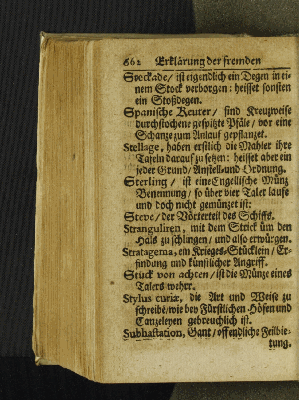 662 Erklärung der fremden
Speckade / ist eigendlich ein Degen in ei-
nem Stock verborgen: heisset sonsten
ein Stoßdegen.
Spanische Reuter / sind Kreuzweise
durchstochene gespitzte Pfäle / vor eine
Schanze zum Anlauf gepflanzet.
Stellage, haben erstlich die Mahler ihre
Tafeln darauf zu setzen: heisset aber ein
jeder Grund / Anstell- und Ordnung.
Sterling / ist eine Engellische Münz
Benennung / so über vier Taler laufe
und doch nicht gemünzet ist:
Steve / der Vörterteil des Schiffs.
Stranguliren, mit dem Strick üm den
Hals zu schlingen / und also erwürgen.
Stratagema, ein Krieges-Stücklein / Er-
findung und künstlicher Angriff.
Stück von achten / ist die Münze eines
Talers wehrt.
Stylus curiæ, die Art und Weise zu
schreibe / wie bey Fürstlichen Höfen und
Canzeleyen gebreuchlich ist.
Subhastation, Gant / offendliche Feilbie-
tung.